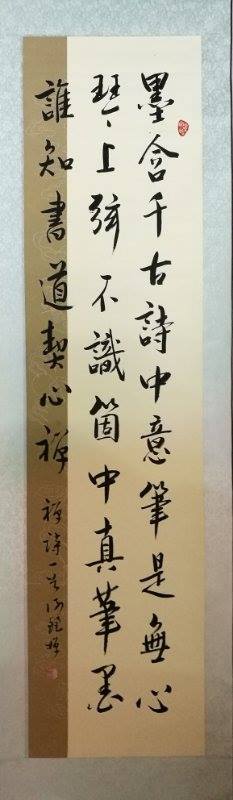 墨含千古詩中意筆是無心
琴上弦不識箇中真筆墨
誰知書道契心禪
禪詩一首